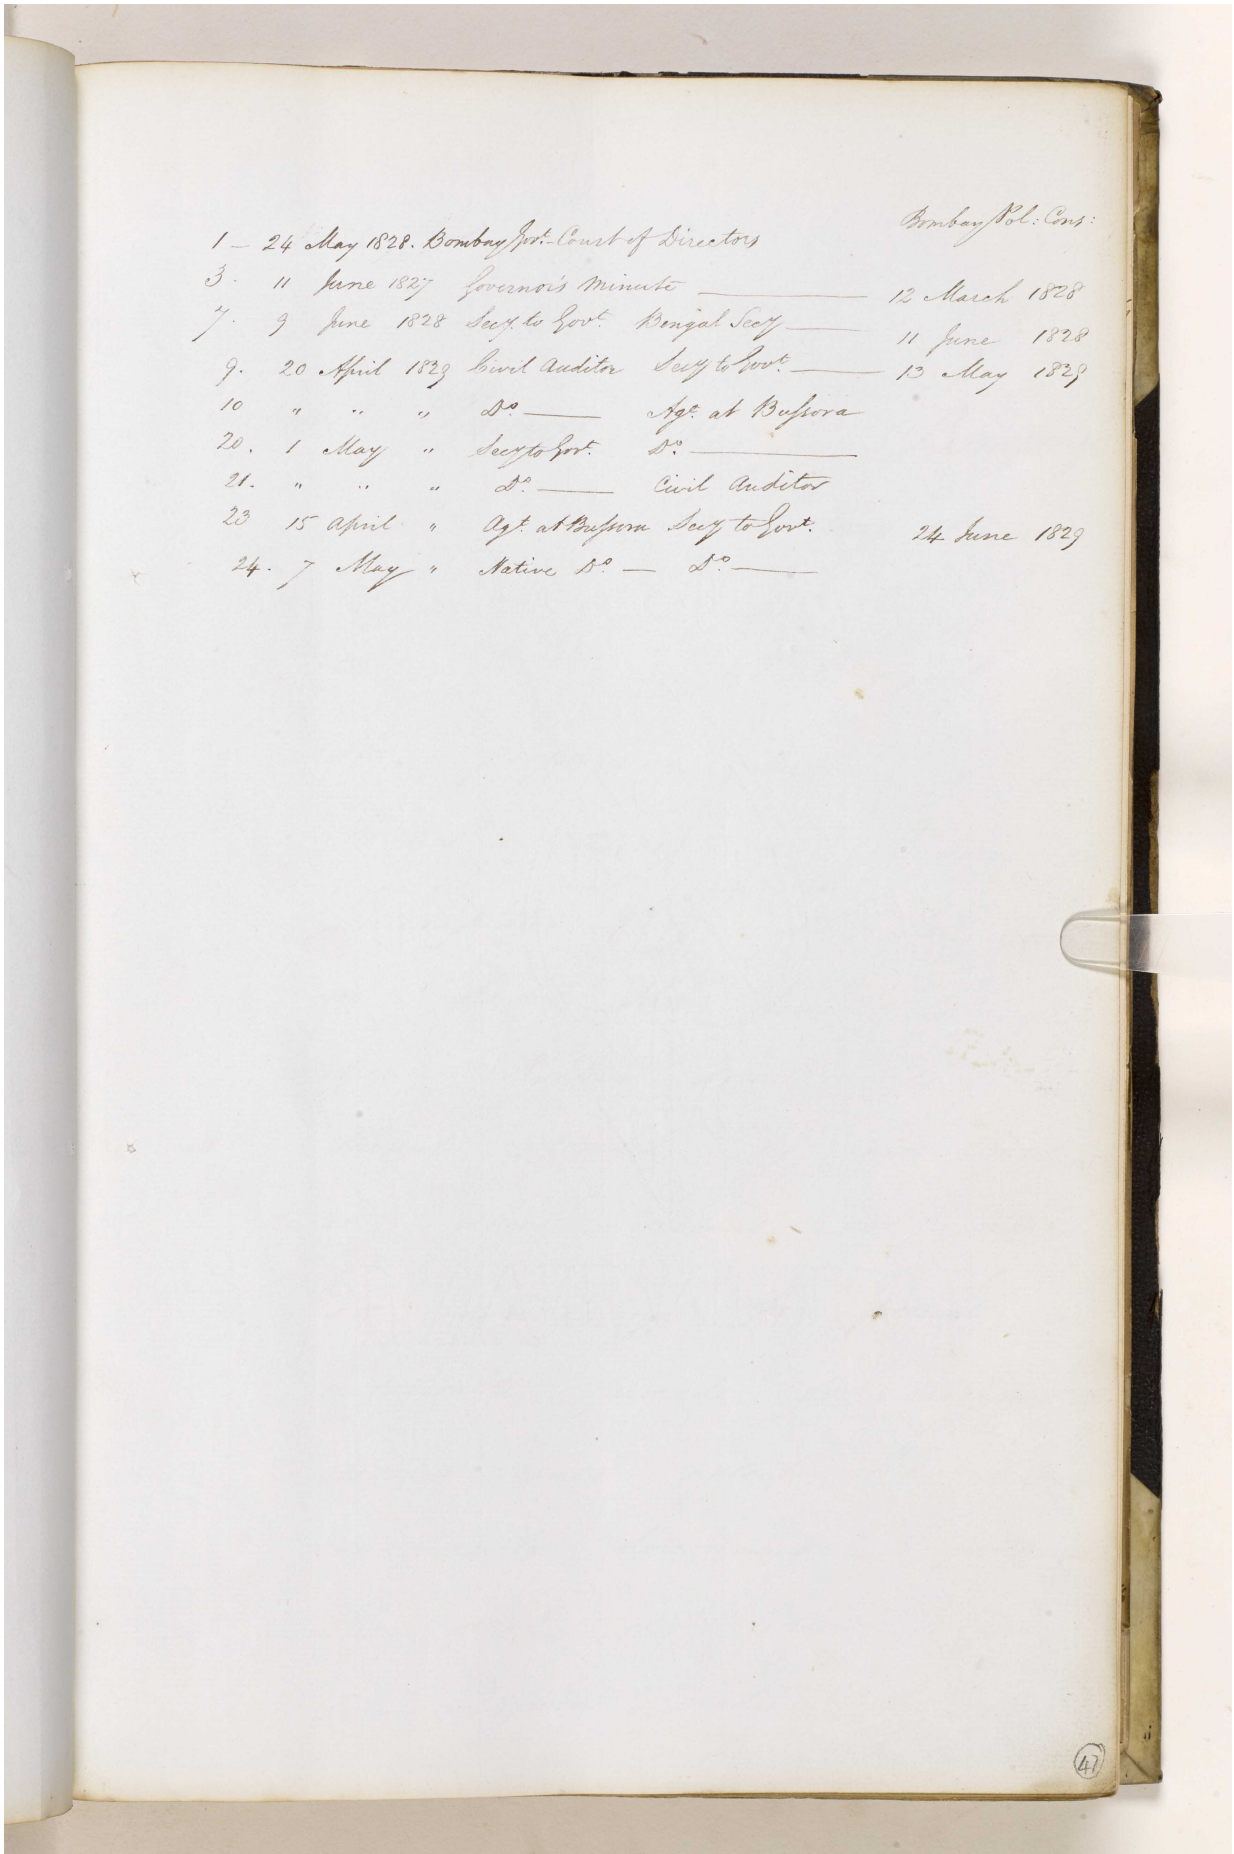 Bombay Pol: Cons:
1 – 24 May 1828. Bombay Govt. Court of Directors
3. 11 June 1827 Governor's Minute —— 12 March 1828
7. 9 June 1828 Secy. to Govt. Bengal Secy —— 11 June 1828
9. 20 April 1829 Civil Auditor Secy to Govt. —— 13 May 1829
10 " " " Do. —— Agt. at Bussora
20. 1 May " Secy to Govt. Do. ——
21. " " " Do. —— Civil Auditor
23 15 April " Agt. at Bussora Secy to Govt. 24 June 1829
24. 7 May " Native Do. — Do. ——
47